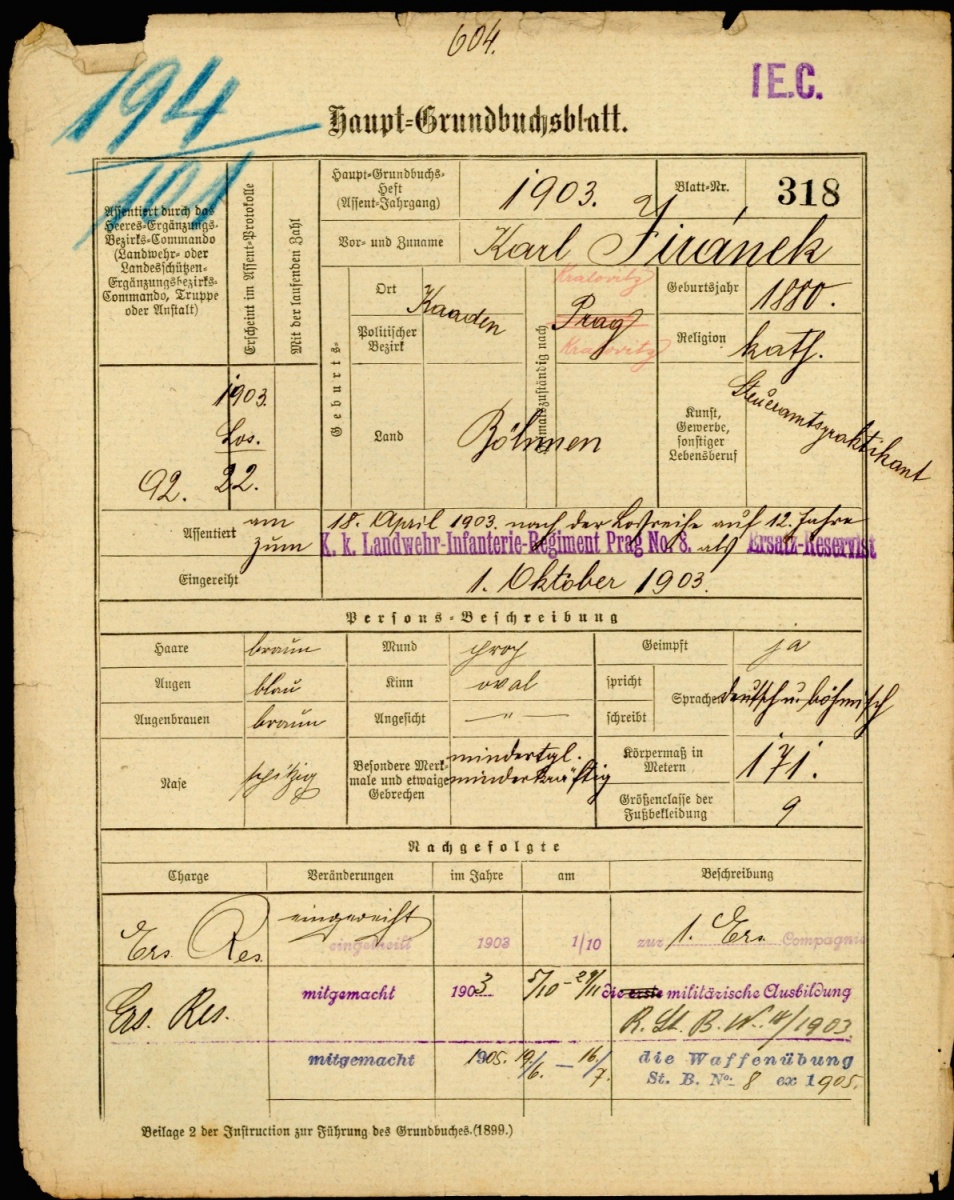 604.
194
101
I E.C.
Haupt-Grundbuchsblatt.
Assentiert durch das
Heeres-Ergänzungs-
Bezirks-Commando
(Landwehr- oder
Landesschützen-
Ergänzungsbezirks-
Commando, Truppe
oder Anstalt)
Erscheint im Assent-Protokolle
Mit der laufenden Zahl
1903.
Los.
92. 22.
Haupt-Grundbuchs-
Heft
(Assent-Jahrgang)
1903.
Blatt-Nr.
318
Vor- und Zuname
Karl Jiránek
Geburts-
Ort
Kaaden
Politischer
Bezirk
Land
Böhmen
zuständig nach
Kralovitz
Prag
Kralovitz
Geburtsjahr
1880.
Religion
kath.
Kunst,
Gewerbe,
sonstiger
Lebensberuf
Steueramtspraktikant
Assentiert
am
18. April 1903. nach der Losreihe auf 12. Jahre
zum
K. k. Landwehr-Infanterie-Regiment Prag No. 8. als Ersatz-Reservist
Eingereiht
1. Oktober 1903.
Persons-Beschreibung
Haare
braun
Mund
prop
Geimpft
ja
Augen
blau
Kinn
oval
spricht
schreibt
Sprachen
deutsch u. böhmisch
Augenbrauen
braun
Angesicht
— " —
Nase
spitzig
Besondere Merk-
male und etwaige
Gebrechen
mindertgl.
minderkräftig
Körpermaß in
Metern
171.
Größenclasse der
Fußbekleidung
9
Nachgefolgte
Charge Veränderungen im Jahre am Beschreibung
Ers Res. eingereiht
eingereiht 1903 1/10 zur 1. Ers. Compagnie
Ers. Res. mitgemacht 1903 5/10 - 29/11 die erste militärische Ausbildung
R. St. B. N. 11/1903
mitgemacht 1905. 19./6. — 16./7. die Waffenübung
St. B. No. 8 ex 1905.
Beilage 2 der Instruction zur Führung des Grundbuches.(1899.)